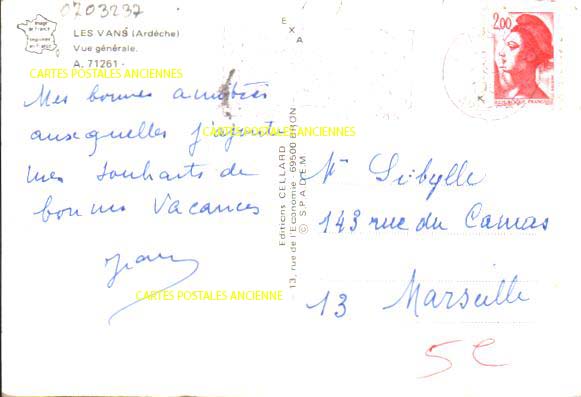 0703237
Image
de France
LES VANS (Ardèche)
Vue générale.
A. 71261
CARTES POSTALES ANCIENNES
Mes bonnes amitiés
auxquelles j'ajoute
CARTES POSTALES ANCIENNES
mes souhaits de
bonnes vacances
Jean
CARTES POSTALES ANCIENNE
EXA
Editions CELLARD
13, rue de l'Economie - 69500 BRON
© S.P.A.D.E.M.
2,00
REPUBLIQUE FRANCAISE
Mr Sibylle
143 rue du Camas
13 Marseille
5E